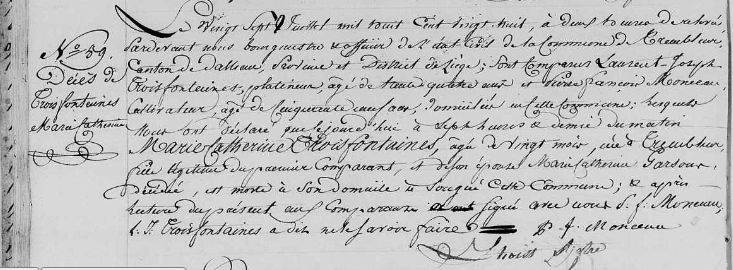 N.° 59.
Décès de
Troisfontaines
Marie Catherine
Le Vingt Sept Juillet mil huit Cent vingt huit, à deux heures de relevé
Pardevant nous bourguestre & officier de l'état Civil de la Commune de Trembleur,
Canton de Dalhem, Province et District de Liege; sont Comparus Laurent Joseph
Troisfontaines, platineur, agé de trente quatre ans et françois Monceau
Cultivateur, agé de Cinquante ans, domiciliés en cette Commune; lesquels
nous ont déclaré que ce jourd'hui à sept heures & demie du matin
Marie Catherine Troisfontaines, agée de vingt mois, née à Trembleur,
fille légitime du premier Comparant, et de son épouse Marie Catherine
, est morte à son domicile à Cette Commune; & après
lecture du present aux Comparants signé avec nous
L. J. Troisfontaines a dit ne savoir faire
J. Monceau